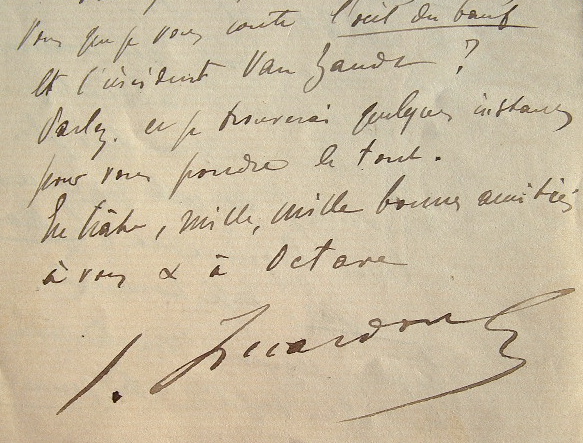 Pour que je vous conte l'œil du bœuf
Et l'incident Van Zandt ?
Parlez. et je trouverai quelques instants
pour vous pondre le tout.
En hâte, mille, mille bonnes amitiés
à vous & à Octave